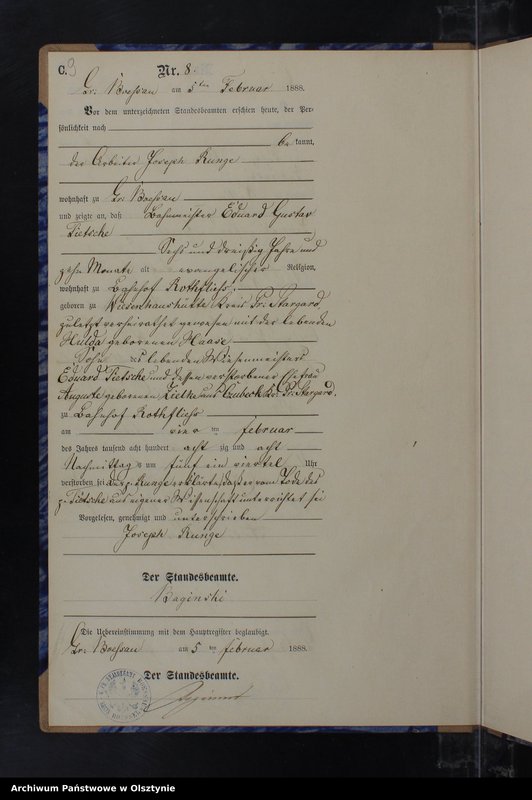 C.
Nr. 8
Gr. Boessau am 5ten Februar 1888.
Vor dem unterzeichneten Standesbeamten erschien heute, der Per-
sönlichkeit nach
be kannt,
der Arbeiter Joseph Runge
wohnhaft zu Gr. Boessau
und zeigte an, daß Bahnmeister Eduard Gustav
Tietsche
Sechs und dreißig Jahre und
zehn Monate alt evangelischer Religion,
wohnhaft zu Bahnhof Rothfließ,
geboren zu Kreis Pr. Stargard
zuletzt verheirathet gewesen mit der lebenden
Hulda geborenen Haase
Sohn des lebenden Wiesenmeisters
Eduard Tietsche und dessen verstorbener Ehefrau
Auguste geborenen aus Kr. Pr. Stargard,
zu Bahnhof Rothfließ
am vier ten Februar
des Jahres tausend acht hundert acht zig und acht
Nachmittags um fünf ein viertel Uhr
verstorben sei. Runge erklärte, daß er vom Tode des
p. Tietsche aus eigener Wissenschaft unterrichtet sei
Vorgelesen, genehmigt und unterschrieben
Joseph Runge
Der Standesbeamte.
Baginski
Die Uebereinstimmung mit dem Hauptregister beglaubigt.
Gr. Boessau am 5ten Februar 1888.
Der Standesbeamte.
Baginski
Archiwum Państwowe w Olsztynie